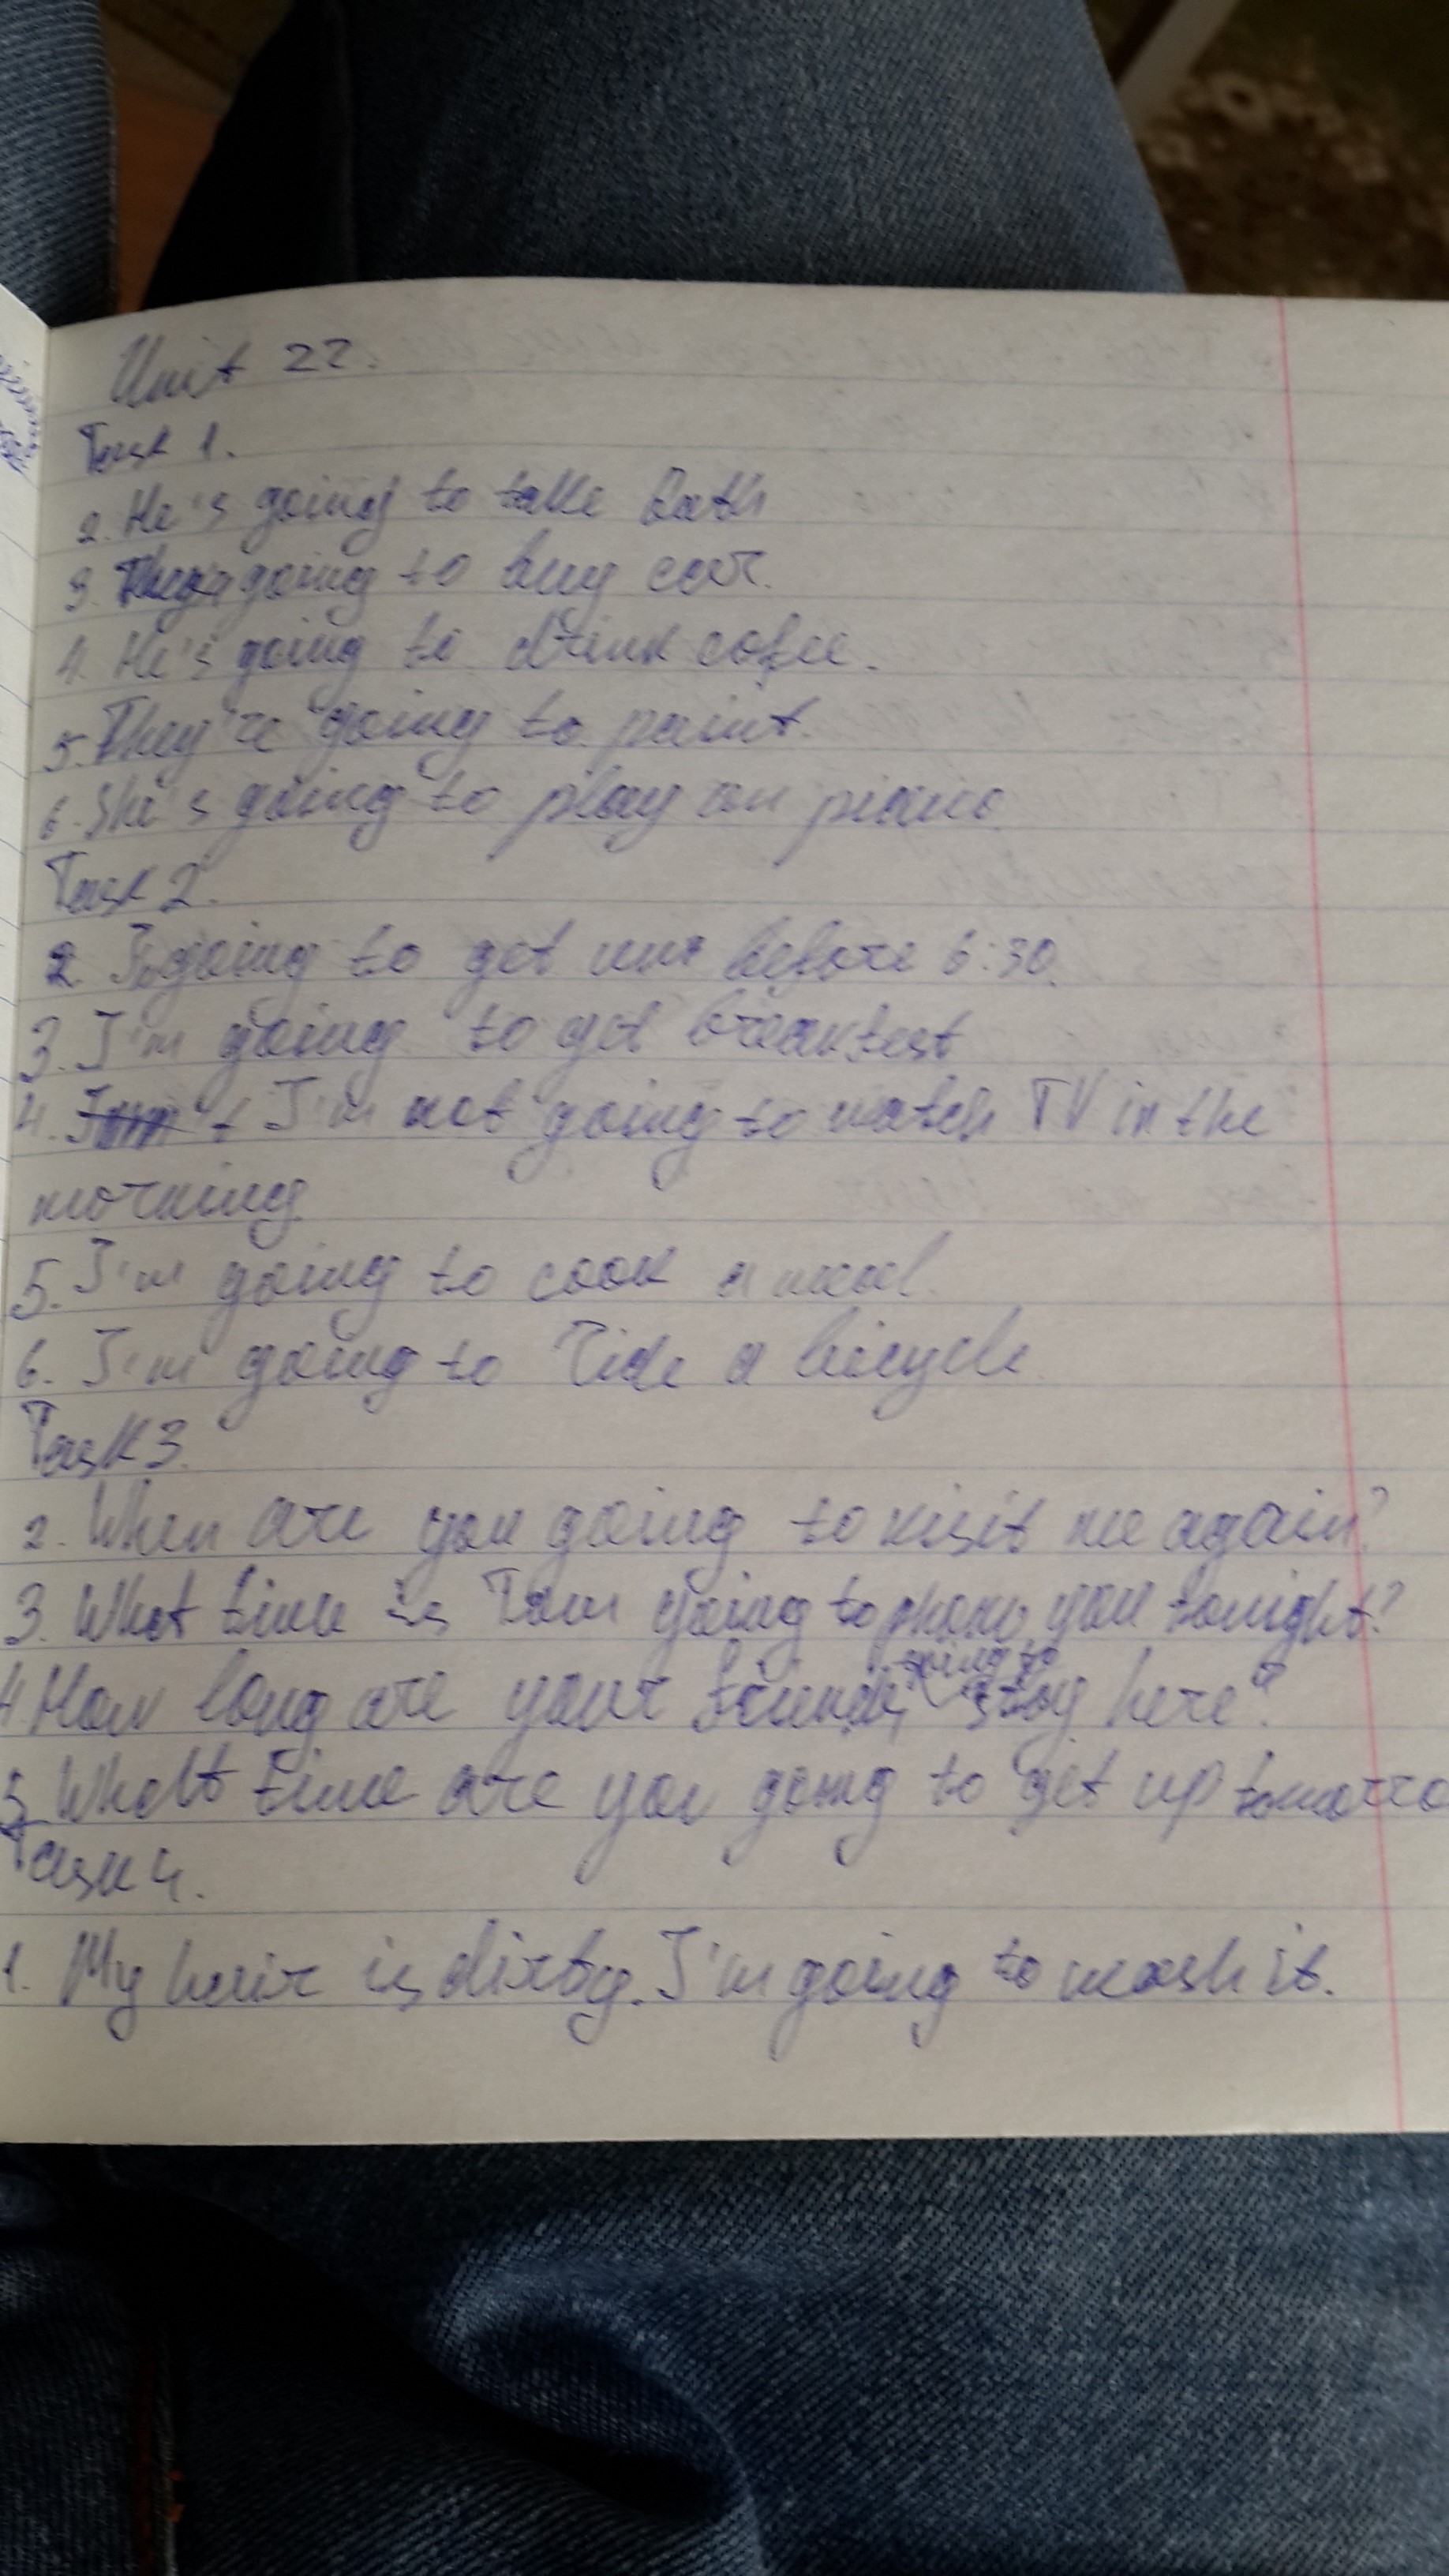 Unit 22.
Task 1.
2. He's going to take bath
3. going to buy car.
4. He's going to drink cofee.
5. They're going to paint.
6. She's going to play on piano.
Task 2.
2. going to get before 6:30.
3. I'm going to get breakfest
4. I'm not going to watch TV in the
morning
5. I'm going to cook a meal.
6. I'm going to ride a bicycle.
Task 3.
2. When are you going to visit me again?
3. What time is I am going to phone you tonight?
going to
4. How long are your friends stay here?
5 What time are you going to get up tomorro
Task 4.
1. My hair is dirty. I'm going to wash it.